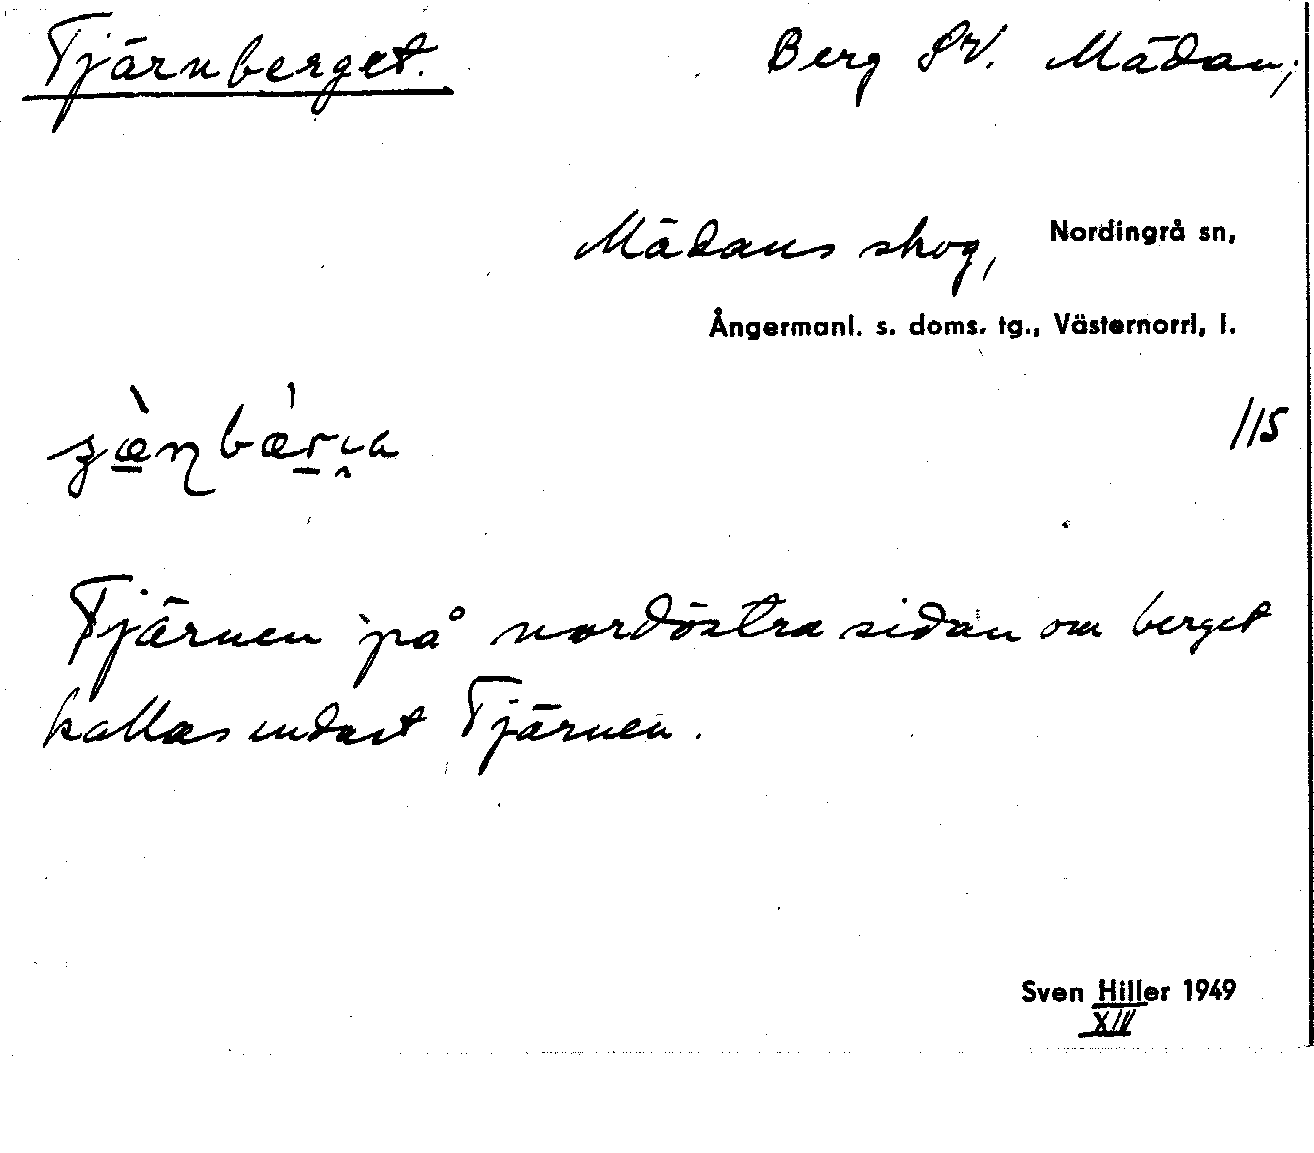 Tjärnberget. Berg SV. Mädan;
Mädans skog, Nordingrå sn,
Ångermanl. s. doms. tg., Västernorrl, l.
115
Tjärnen på nordöstra sidan om berget
kallas endast Tjärnen.
Sven Hiller 1949
XIV